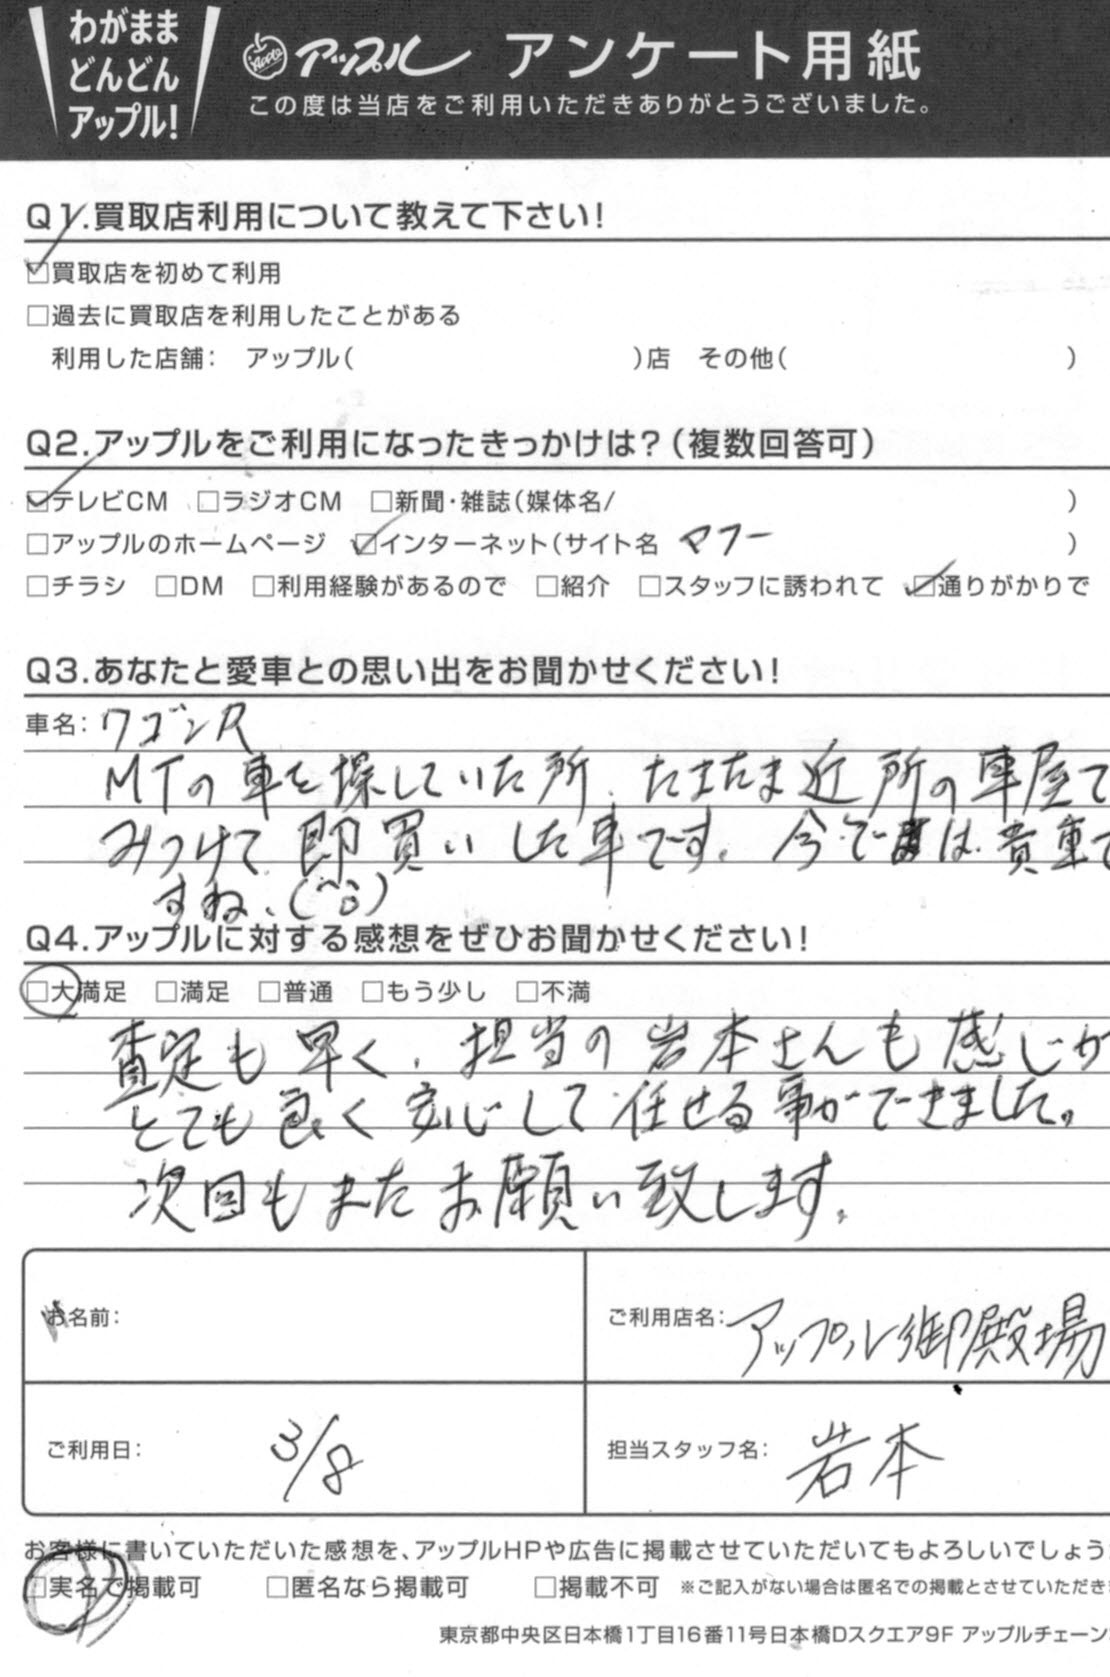 わがまま
どんどん
アップル!
Apple アップル アンケート用紙
この度は当店をご利用いただきありがとうございました。
Q1.買取店利用について教えて下さい!
☑買取店を初めて利用
□過去に買取店を利用したことがある
利用した店舗: アップル( )店 その他( )
Q2.アップルをご利用になったきっかけは?(複数回答可)
☑テレビCM □ラジオCM □新聞・雑誌(媒体名/ )
□アップルのホームページ ☑インターネット(サイト名 ヤフー )
□チラシ □DM □利用経験があるので □紹介 □スタッフに誘われて ☑通りがかりで
Q3.あなたと愛車との思い出をお聞かせください!
車名: ワゴンR
MTの車を探していた所、たまたま近所の車屋で
みつけて即買いした車です。今では貴重で
すね、(^^)
Q4.アップルに対する感想をぜひお聞かせください!
□大満足 □満足 □普通 □もう少し □不満
査定も早く、担当の岩本さんも感じが
とても良く安心して任せる事ができました。
次回もまたお願い致します。
お名前:
ご利用店名: アップル御殿場
ご利用日: 3/8
担当スタッフ名: 岩本
お客様に書いていただいた感想を、アップルHPや広告に掲載させていただいてもよろしいでしょう
□実名で掲載可 □匿名なら掲載可 □掲載不可 ※ご記入がない場合は匿名での掲載とさせていただき
東京都中央区日本橋1丁目16番11号日本橋Dスクエア9F アップルチェーン